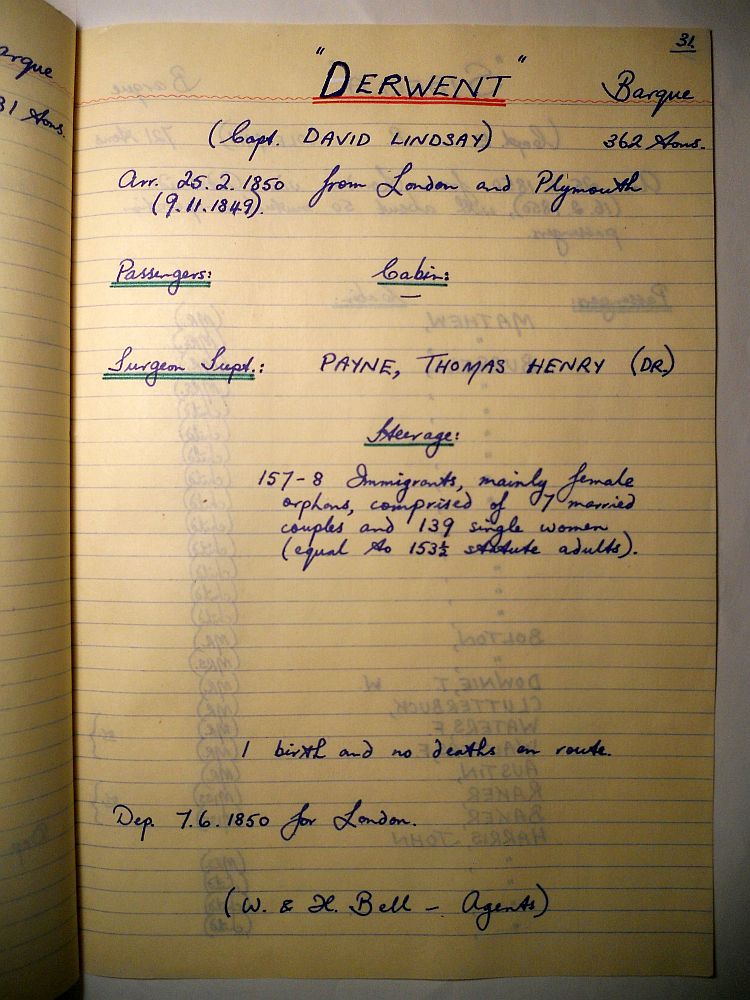 31.
"DERWENT" Barque
(Capt. DAVID LINDSAY) 362 tons.
Arr. 25.2.1850 from London and Plymouth
(9.11.1849).
Passengers: Cabin:
—
Surgeon Supt.: PAYNE, THOMAS HENRY (DR.)
Steerage:
157-8 Immigrants, mainly female
orphans, comprised of 7 married
couples and 139 single women
(equal to 153½ statute adults).
1 birth and no deaths en route.
Dep. 7.6.1850 for London.
(W. & H. Bell - Agents)
arque
31 tons.